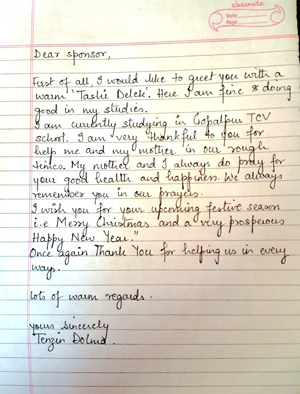 classmate
Date
Page
Dear sponsor,
First of all, I would like to greet you with a
warm 'Tashi Delek'. Here I am fine & doing
good in my studies.
I am currently studying in Gopalpur TCV
school. I am very thankful to you for
help me and my mother in our rough
times. My mother and I always do pray for
your good health and happiness. We always
remember you in our prayers.
I wish you for your upcoming festive season
i.e Merry Christmas and a very prosperous
Happy New Year."
Once again Thank You for helping us in every
ways.
lots of warm regards.
yours Sincerely
Tenzin Dolma.